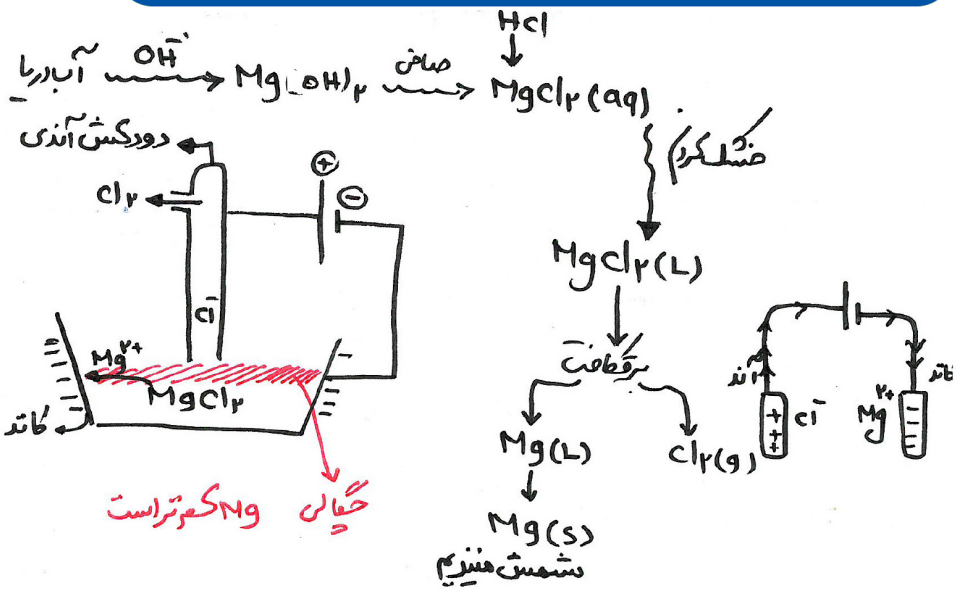 آب دریا OH⁻ Mg(OH)۲ صافی MgCl۲(aq)
HCl
خشک کردن
MgCl۲(L)
برقکافت
Mg(L) Cl۲(g)
Mg(s)
شمش منیزیم
دودکش آندی
Cl۲
⊕
⊖
Cl⁻
Mg۲+
MgCl۲
کاتد
چگالی Mg کمتر است
آند
Cl⁻
+
+
+
کاتد
Mg۲+